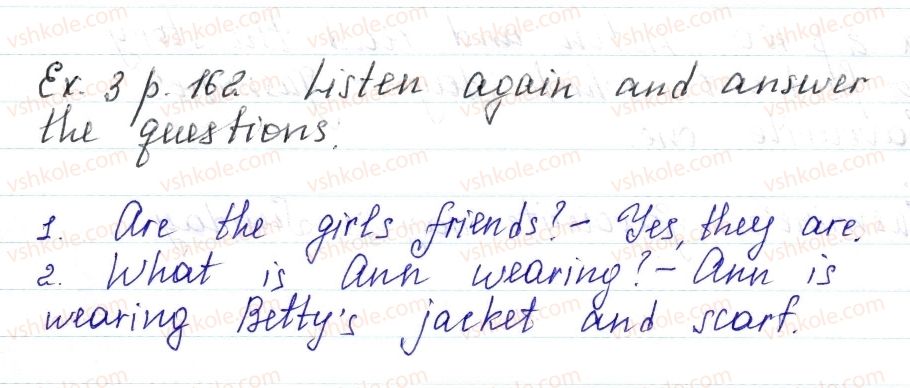 Ex. 3 p. 162 Listen again and answer
the questions:
1. Are the girls friends? - Yes, they are.
2. What is Ann wearing? - Ann is
wearing Betty's jacket and scarf.